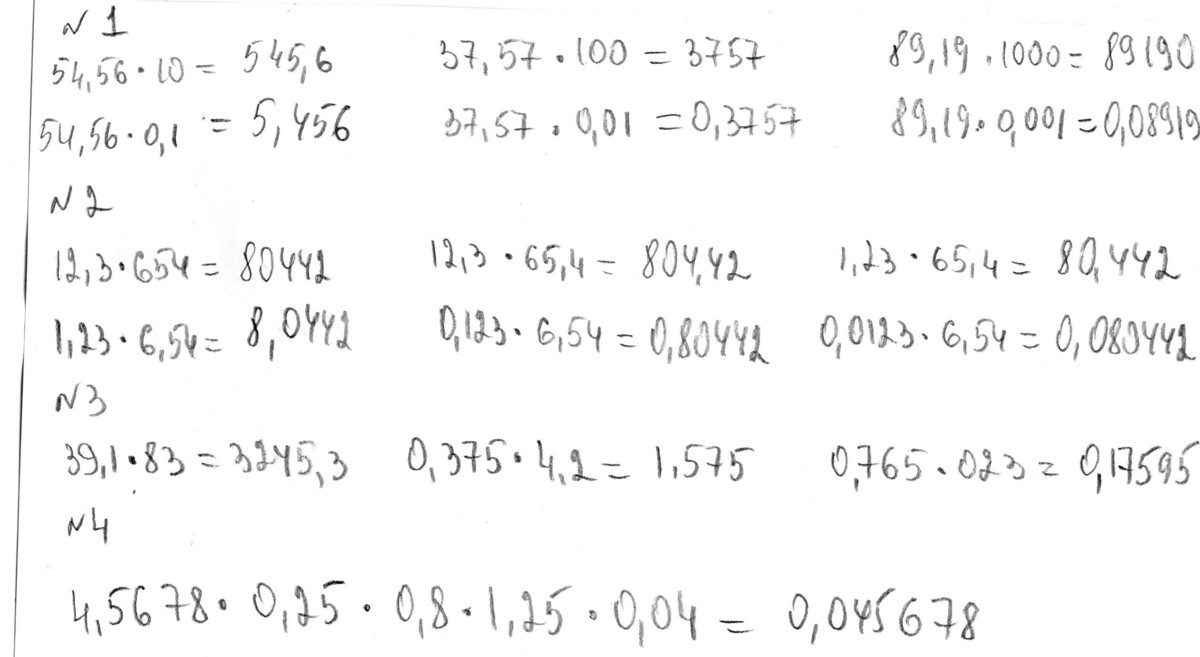 №1
54,56·10 = 545,6 37,57·100 = 3757 89,19·1000 = 89190
54,56·0,1 = 5,456 37,57·0,01 = 0,3757 89,19·0,001 = 0,08919
№2
12,3·654 = 80442 12,3·65,4 = 804,42 1,23·65,4 = 80,442
1,23·6,54 = 8,0442 0,123·6,54 = 0,80442 0,0123·6,54 = 0,080442
№3
39,1·83 = 3245,3 0,375·4,2 = 1,575 0,765·023 = 0,17595
№4
4,5678·0,25·0,8·1,25·0,04 = 0,045678